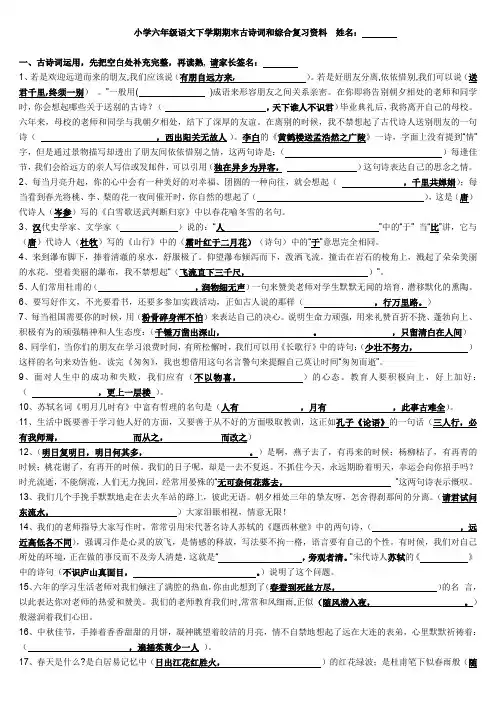 小学六年级语文下学期期末古诗词和综合复习资料　姓名：
一、古诗词运用，先把空白处补充完整，再读熟，请家长签名：
1、若是欢迎远道而来的朋友,我们应该说（有朋自远方来，　　　　）。若是好朋友分离,依依惜别,我们可以说（送
君千里,终须一别）　。”一般用(　　　　)成语来形容朋友之间关系亲密。在你即将告别朝夕相处的老师和同学
时，你会想起哪些关于送别的古诗？（　　　　，天下谁人不识君）毕业典礼后，我将离开自己的母校。
六年来，母校的老师和同学与我朝夕相处，结下了深厚的友谊。在离别的时候，我不禁想起了古代诗人送别朋友的一句
诗（　　　　，西出阳关无故人）。李白的《黄鹤楼送孟浩然之广陵》一诗，字面上没有提到“情”
字，但是通过景物描写却透出了朋友间依依惜别之情，这两句诗是:（　　　　）每逢佳
节，我们会给远方的亲人写信或发邮件，可以引用（独在异乡为异客，　　　　）这句诗表达自己的思念之情。
2、每当月亮升起，你的心中会有一种美好的对幸福、团圆的一种向往，就会想起（　　　　，千里共婵娟）；每
当看到春光将桃、李、梨的花一夜间催开时，你自然的想起了（　　　　），这是（唐）
代诗人（岑参）写的《白雪歌送武判断归京》中以春花喻冬雪的名句。
3、汉代史学家、文学家（　　　　）说的：“人　　　　”中的“于” 当“比”讲，它与
（唐）代诗人（杜牧）写的《山行》中的（霜叶红于二月花）（诗句）中的“于”意思完全相同。
4、来到瀑布脚下，捧着清澈的泉水，舒服极了。仰望瀑布倾泻而下，泼洒飞流，撞击在岩石的棱角上，溅起了朵朵美丽
的水花。望着美丽的瀑布，我不禁想起“（飞流直下三千尺，　　　　）”。
5、人们常用杜甫的（　　　　，润物细无声）一句来赞美老师对学生默默无闻的培育，潜移默化的熏陶。
6、要写好作文，不光要看书，还要多参加实践活动，正如古人说的那样（　　　　，行万里路。）
7、每当祖国需要你的时候，用（粉骨碎身浑不怕）来表达自己的决心。说明生命力顽强，用来礼赞百折不挠、蓬勃向上、
积极有为的顽强精神和人生态度：（千锤万凿出深山，　　　　。　　　　，只留清白在人间）
8、同学们，当你们的朋友在学习浪费时间，有所松懈时，我们可以用《长歌行》中的诗句：（少壮不努力，　　　　）
这样的名句来劝告他。读完《匆匆》，我也想借用这句名言警句来提醒自己莫让时间“匆匆而逝”。
9、面对人生中的成功和失败，我们应有（不以物喜，　　　　）的心态。教育人要积极向上，好上加好：
（　　　　，更上一层楼）。
10、苏轼名词《明月几时有》中富有哲理的名句是（人有　　　　，月有　　　　，此事古难全）。
11、生活中既要善于学习他人好的方面，又要善于从不好的方面吸取教训，这正如孔子《论语》的一句话（三人行，必
有我师焉，　　　　而从之，　　　　而改之）
12、（明日复明日，明日何其多，　　　　。）是啊，燕子去了，有再来的时候；杨柳枯了，有再青的
时候；桃花谢了，有再开的时候。我们的日子呢，却是一去不复返。不抓住今天，永远期盼着明天，幸运会向你招手吗？
时光流逝，不能倒流，人们无力挽回，经常用晏殊的“无可奈何花落去，　　　　”这两句诗表示慨叹。
13、我们几个手挽手默默地走在去火车站的路上，彼此无语。朝夕相处三年的挚友呀，怎舍得刹那间的分离。（请君试问
东流水，　　　　）大家泪眼相视，情意无限！
14、我们的老师指导大家写作时，常常引用宋代著名诗人苏轼的《题西林壁》中的两句诗，（　　　　，远
近高低各不同），强调习作是心灵的放飞，是情感的释放，写法要不拘一格，语言要有自己的个性。有时候，我们对自己
所处的环境，正在做的事反而不及旁人清楚，这就是“　　　　，旁观者清。”宋代诗人苏轼的《　　　　》
中的诗句（不识庐山真面目，　　　　。）说明了这个问题。
15、六年的学习生活老师对我们倾注了满腔的热血，你由此想到了（春蚕到死丝方尽，　　　　）的名 言，
以此表达你对老师的热爱和赞美。我们的老师教育我们时,常常和风细雨,正似（随风潜入夜，　　　　。）
般滋润着我们心田。
16、中秋佳节，手捧着香香甜甜的月饼，凝神眺望着皎洁的月亮，情不自禁地想起了远在大连的表弟，心里默默祈祷着：
（　　　　，遍插茱萸少一人）。
17、春天是什么?是白居易记忆中（日出江花红胜火，　　　　）的红花绿波；是杜甫笔下似春雨般（随